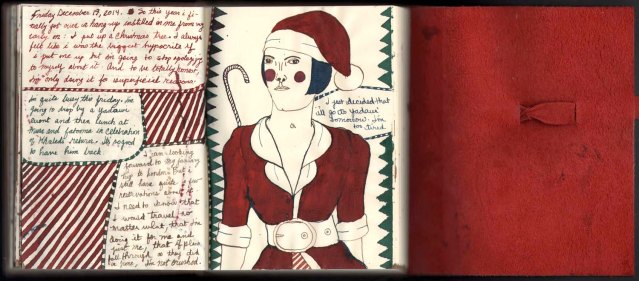 Friday December 19, 2014. So this year I fi-
nally got over a hang up instilled in me from my
early on: I put up a Christmas tree. I always
felt like I was the biggest hypocrite if
I put one up but I'm going to stop
to myself about it. And to be totally honest,
I'm only doing it for superficial reasons.
I'm quite busy this friday. I'm
going to drop by a Yadawi
event and then lunch at
Muse and in celebration
of Khaled's return. It's so good
to have him back.
I am looking
forward to my
trip to London. But I
still have quite a few
reservations about it.
I need to know that
I would travel no
matter what, that I'm
doing it for me and
just me, that if plans
fall through as they did
before, I'm not crushed.
I just decided that
all go to Yadawi
tomorrow. I'm
too tired.